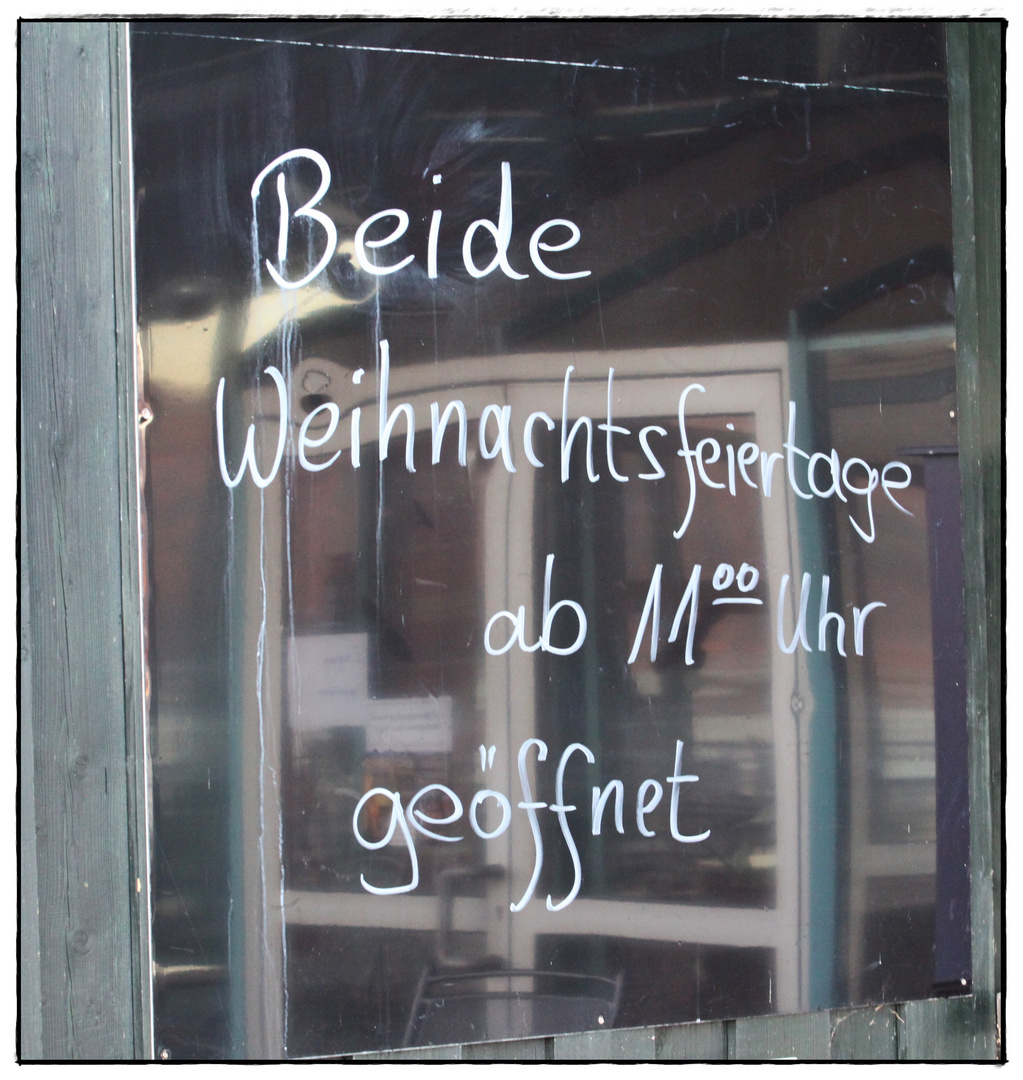 Beide
Weihnachtsfeiertage
ab 11⁰⁰ Uhr
geöffnet